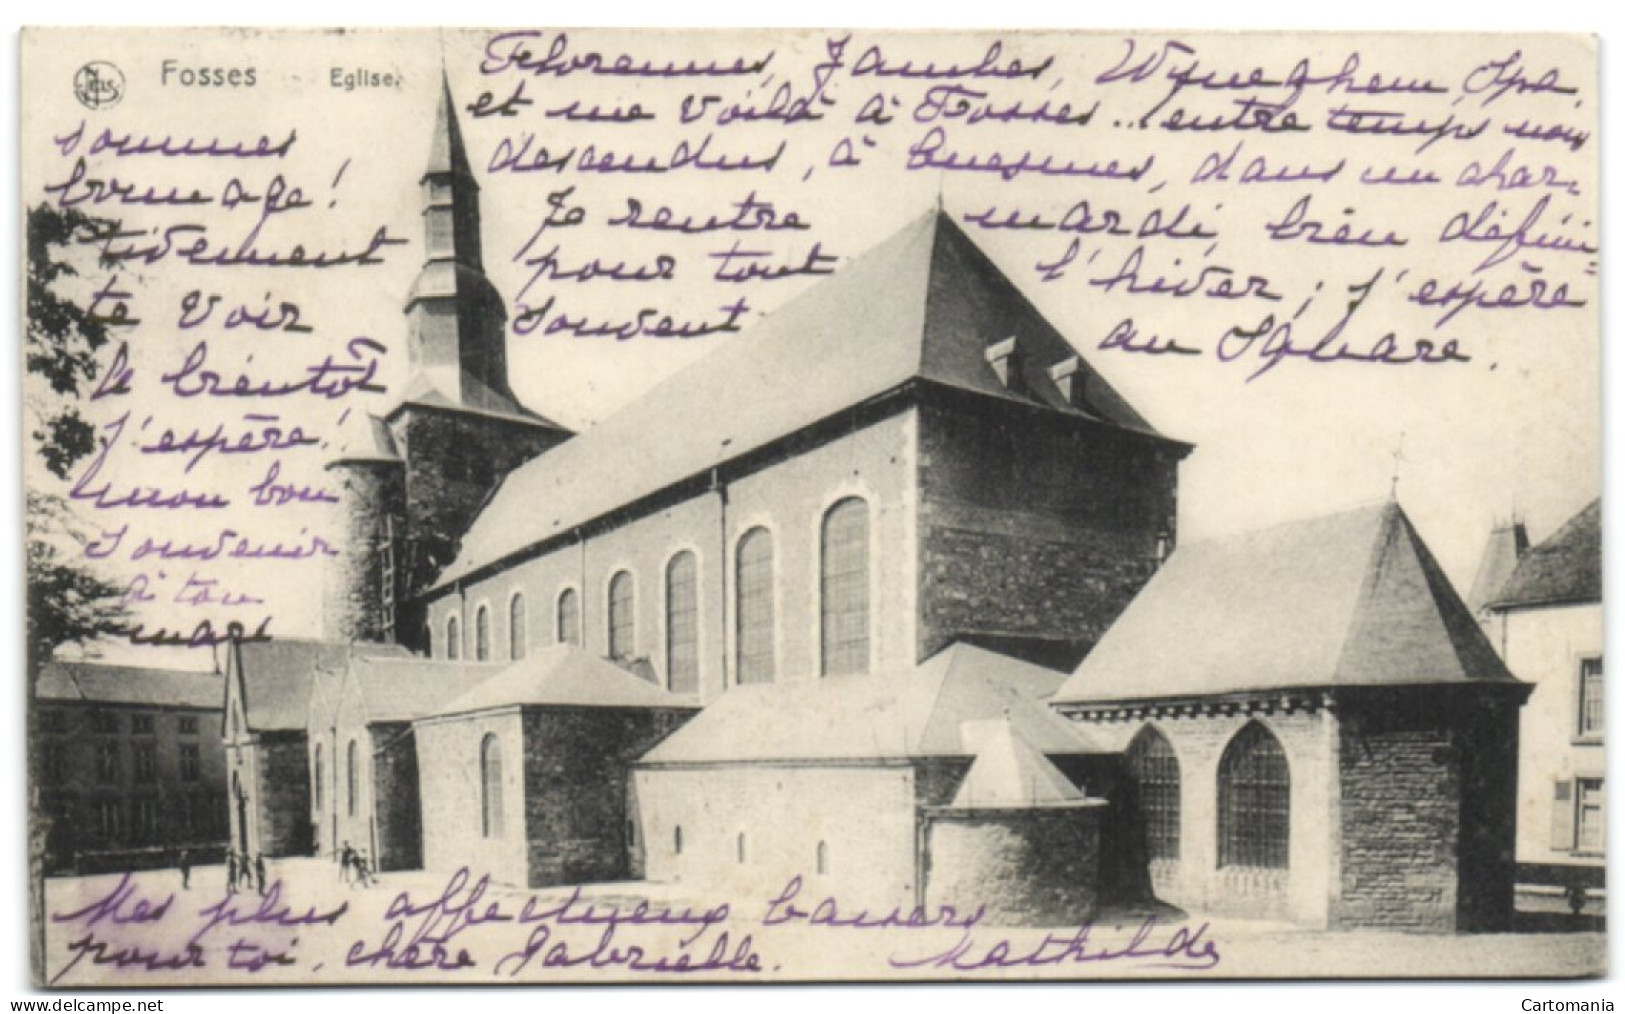 Fosses Eglise.
Florennes, Jambes, Wyneghem, Spa,
et me voilà à Fosses... entre temps nous
sommes descendus, à Cuesmes, dans un char-
bonnage! Je rentre mardi, bien défini-
tivement pour tout l'hiver; j'espère
te voir souvent au Square.
à bientôt
j'espère!
mon bon
souvenir
à ton
mari
Mes plus affectueux baisers
pour toi, chère Gabrielle. Mathilde
Cartomania